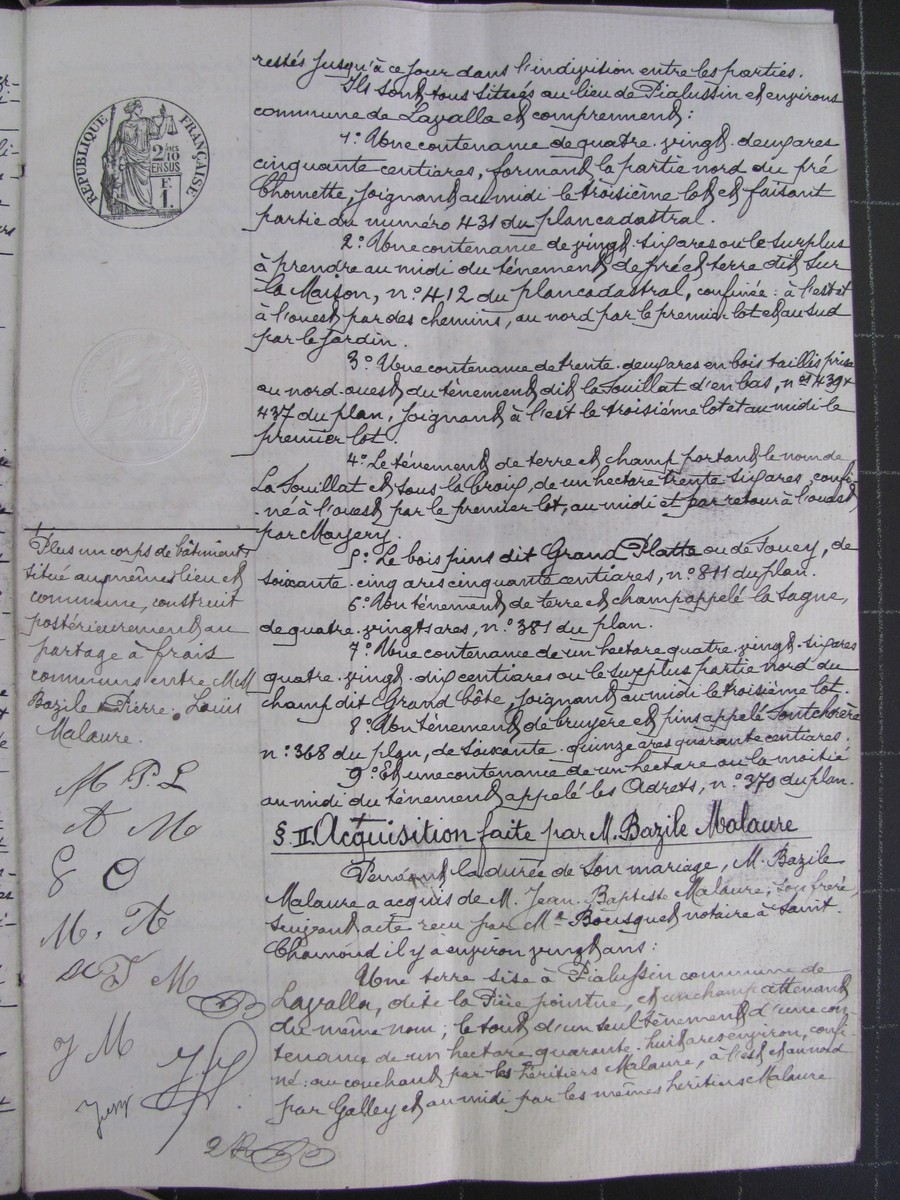 RÉPUBLIQUE FRANÇAISE
2/10
EN SUS
F.
1.
restés jusqu'à ce jour dans l'indivision entre les parties.
Ils sont tous situés au lieu de Pialussin et environs
commune de Lavalla et comprennent :
1° Une contenance de quatre-vingt-deux ares
cinquante centiares, formant la partie nord du pré
Chomette, joignant au midi le troisième lot et faisant
partie du numéro 431 du plan cadastral.
2° Une contenance de vingt-six ares ou le surplus
à prendre au midi du ténement de pré et terre dit Sur
la Maison, n° 412 du plan cadastral, confinée : à l'est et
à l'ouest par des chemins, au nord par le premier lot et au sud
par le jardin.
3° Une contenance de trente-deux ares en bois taillis prise
au nord-ouest du ténement dit la Souillat d'en bas, nos 439 et
437 du plan, joignant à l'est le troisième lot et au midi le
premier lot.
4° Le ténement de terre et champ portant le nom de
La Souillat et sous la Croix, de un hectare trente-six ares, confi-
né à l'ouest par le premier lot, au midi et par retour à l'ouest
par Margery.
5° Le bois pins dit Grand Platte ou de Souey, de
soixante-cinq ares cinquante centiares, n° 811 du plan.
6° Un ténement de terre et champ appelé la Sagne,
de quatre-vingts ares, n° 381 du plan.
7° Une contenance de un hectare quatre-vingt-six ares
quatre-vingt-dix centiares ou le surplus partie nord du
champ dit Grand Côte, joignant au midi le troisième lot.
8° Un ténement de bruyère et pins appelé
n° 368 du plan, de soixante-quinze ares quarante centiares.
9° Et une contenance de un hectare ou la moitié
au midi du ténement appelé les Adrets, n° 370 du plan.
§. II. Acquisition faite par M. Bazile Malaure
Pendant la durée de son mariage, M. Bazile
Malaure a acquis de M. Jean-Baptiste Malaure, son frère,
suivant acte reçu par Me Bousquet notaire à Saint-
Chamond il y a environ vingt ans :
Une terre sise à Pialussin commune de
Lavalla, dite la Pière pointue, et un champ attenant
du même nom ; le tout d'un seul ténement d'une con-
tenance de un hectare quarante-huit ares environ, confi-
né : au couchant par les héritiers Malaure, à l'est et au nord
par Galley et au midi par les mêmes héritiers Malaure
Plus un corps de bâtiment
situé aux mêmes lieu et
commune, construit
postérieurement au
partage à frais
communs entre MM
Bazile et Pierre-Louis
Malaure.
M P L
A M
M. A
J M